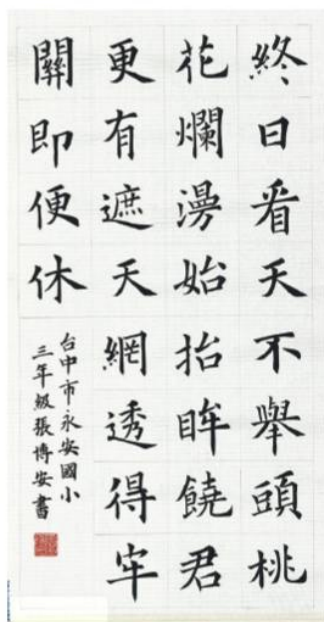 終日看天不舉頭桃
花爛漫始抬眸饒君
更有遮天網透得牢
關即便休
台中市永安國小
三年級張博安書